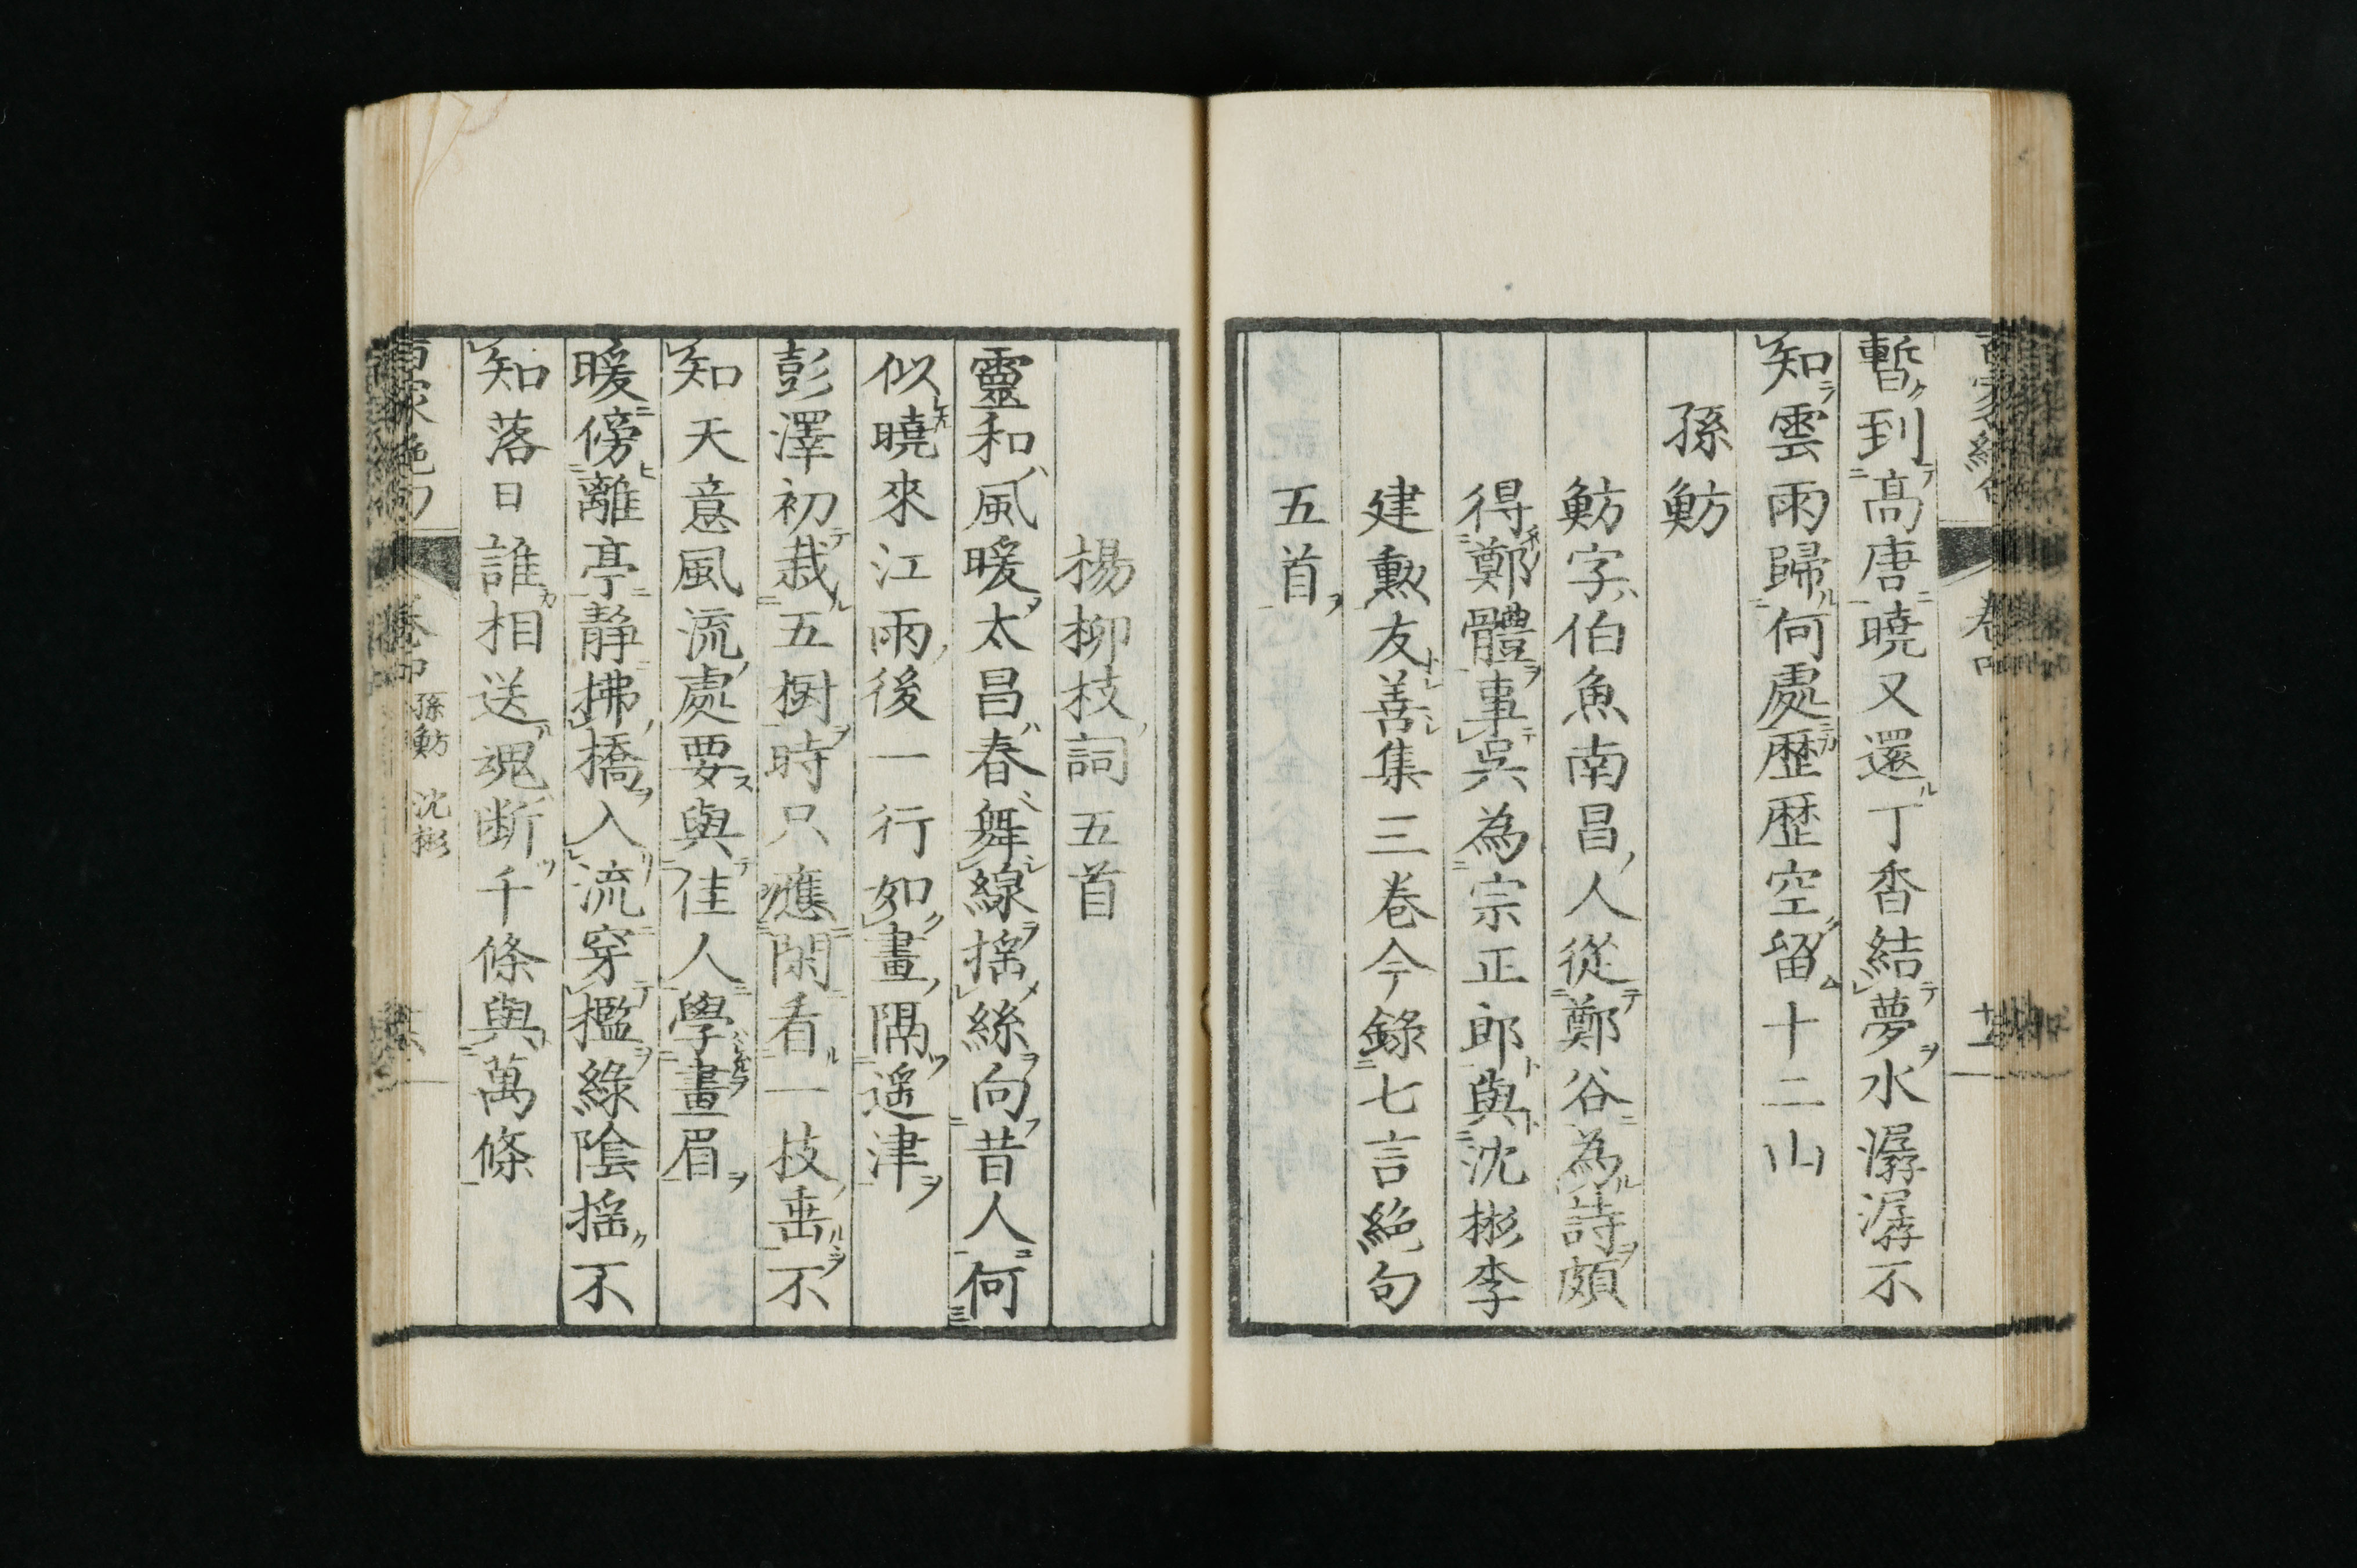 暫到高唐曉又還丁香結夢水潺潺不
知雲雨歸何處歷歷空留十二山
孫魴
魴字伯魚南昌人從鄭谷為詩頗
得鄭體事吳為宗正郎與沈彬李
建勲友善集三卷今錄七言絕句
五首
楊柳枝詞五首
靈和風暖太昌春舞線搖絲向昔人何
似曉來江雨後一行如畫隔遙津
彭澤初栽五樹時只應閑看一枝垂不
知天意風流處要與佳人學畫眉
暖傍離亭靜拂橋入流穿檻綠陰搖不
知落日誰相送魂斷千條與萬條
孫魴 沈彬